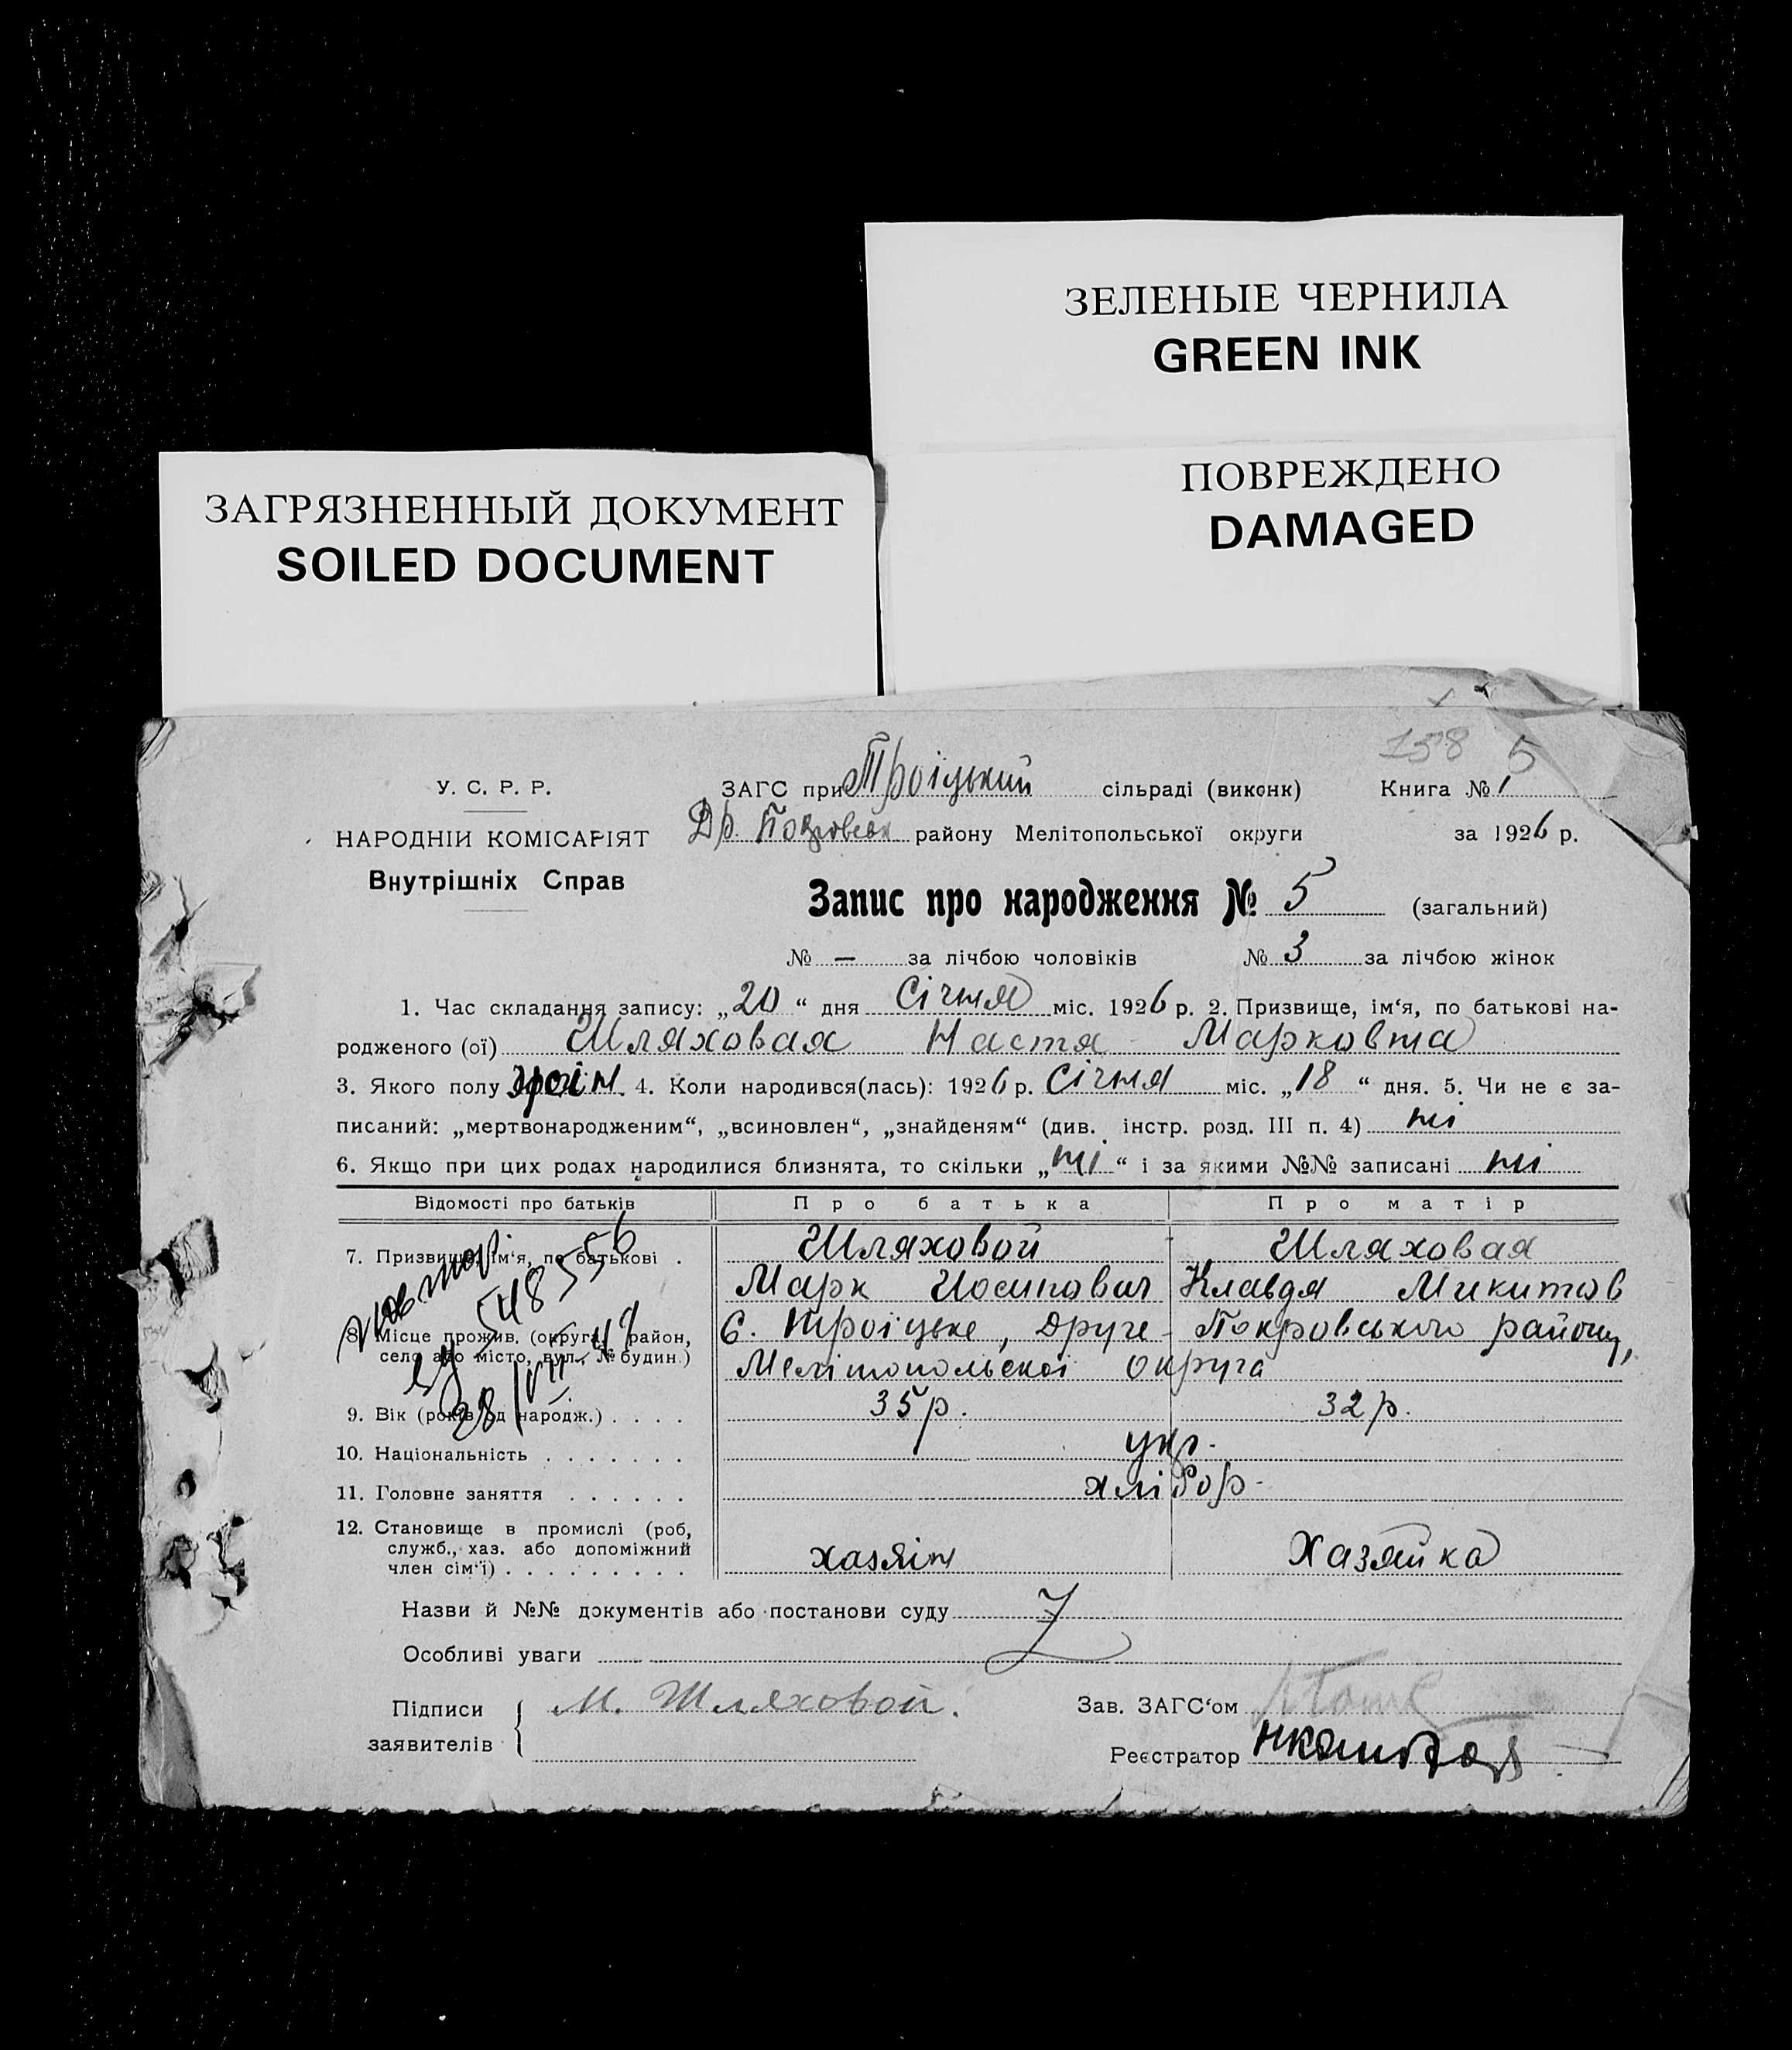 ЗЕЛЕНЫЕ ЧЕРНИЛА
GREEN INK
ПОВРЕЖДЕНО
DAMAGED
ЗАГРЯЗНЕННЫЙ ДОКУМЕНТ
SOILED DOCUMENT
158 5
У. С. Р. Р.
НАРОДНІЙ КОМІСАРІЯТ
Внутрішніх Справ
ЗАГС при Троіцький сільраді (виконк) Книга № 1
Др. Покровськ району Мелітопольської округи за 1926 р.
Запис про народження № 5 (загальний)
№ — за лічбою чоловіків № 3 за лічбою жінок
1. Час складання запису: „20“ дня Січня міс. 1926 р. 2. Призвище, ім‘я, по батькові на-
родженого (ої) Шляховая Настя Марковна
3. Якого полу 4. Коли народився(лась): 1926 р. Січня міс. „18“ дня. 5. Чи не є за-
писаний: „мертвонародженим“, „всиновлен“, „знайденям“ (див. інстр. розд. III п. 4) ні
6. Якщо при цих родах народилися близнята, то скільки „ні“ і за якими №№ записані ні
Відомості про батьків Про батька Про матір
7. Призвище, ім‘я, по батькові . Шляховой Шляховая
Марк Иосипович Клавдя Микитов
8. Місце прожив. (округа, район, С. Троіцьке, Друге-Покровського району,
село або місто, вул., № будин.) Мелітопольскоі округа
повтор
548556
28/VII-47
9. Вік (років од народж.) . . . . 35 р. 32 р.
10. Національність . . . . . . . укр.
11. Головне заняття . . . . . . хлібор-
12. Становище в промислі (роб,
служб., хаз. або допоміжний
член сім‘ї) . . . . . . . . . хазяін Хазяйка
Назви й №№ документів або постанови суду
Особливі уваги
Підписи
заявителів
М. Шляховой.
Зав. ЗАГС‘ом
Реєстратор